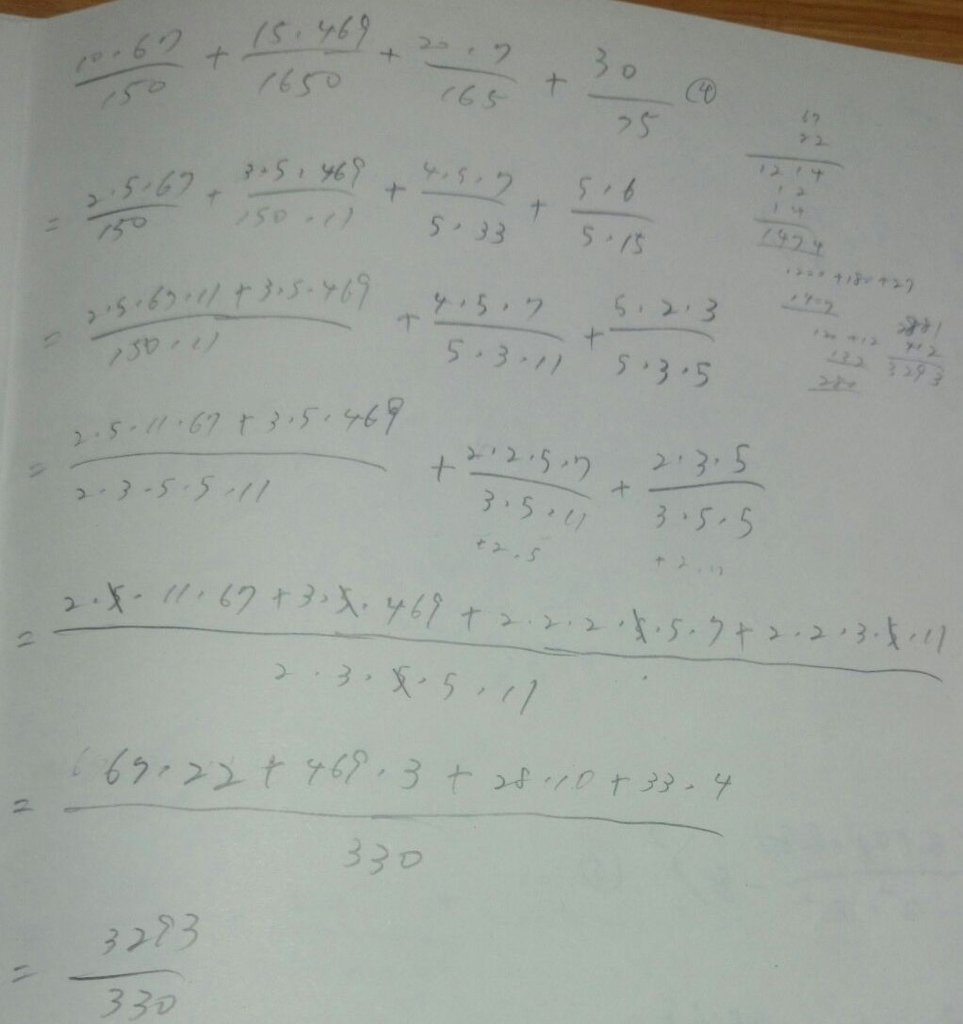 10·67/150 + 15·469/1650 + 20·7/165 + 30/75 (4)
= 2·5·67/150 + 3·5·469/150·11 + 4·5·7/5·33 + 5·6/5·15
= 2·5·67·11+3·5·469/150·11 + 4·5·7/5·3·11 + 5·2·3/5·3·5
= 2·5·11·67+3·5·469/2·3·5·5·11 + 2·2·5·7/3·5·11 + 2·3·5/3·5·5
+2·5 +2·11
= 2·5·11·67+3·5·469+2·2·2·5·5·7+2·2·3·5·11/2·3·5·5·11
= 67·22+469·3+28·10+33·4/330
= 3293/330
67
22
12·14
12
14
1474
1200+180+27
1407
120+12
132
280
412
3293